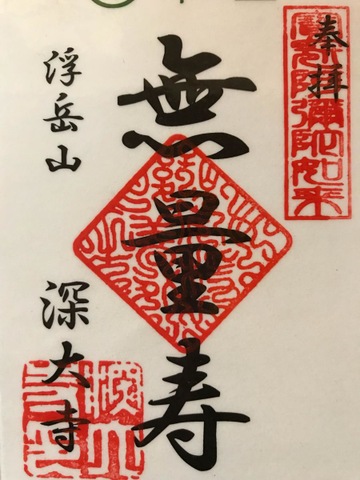 奉拝
寳冠阿彌陀如来
無量寿
浮岳山
深大寺